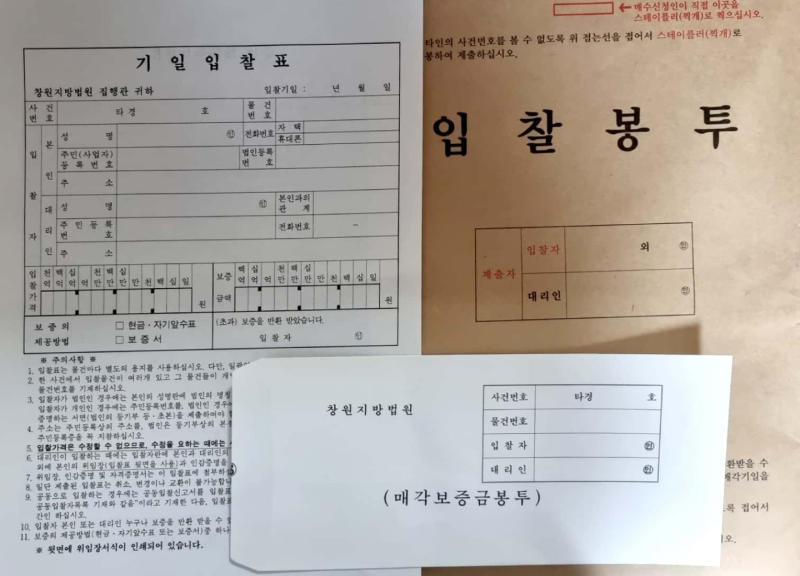 기 일 입 찰 표
창원지방법원 집행관 귀하 입찰기일 : 년 월 일
사 건 번 호 타경 호 물 건 번 호
입 찰 자
본 인
성 명 ㊞ 전화번호 자 택 휴대폰
주민(사업자) 등록번호 법인등록 번 호
주 소
대 리 인
성 명 ㊞ 본인과의 관 계
주민등록 번 호 전화번호 －
주 소
입찰 가격 천억 백억 십억 억 천만 백만 십만 만 천 백 십 일 원
보증 금액 백억 십억 억 천만 백만 십만 만 천 백 십 일 원
보증의 제공방법 □ 현금·자기앞수표 □ 보 증 서
(초과) 보증을 반환 받았습니다.
입 찰 자 ㊞
※ 주의사항 ※
1. 입찰표는 물건마다 별도의 용지를 사용하십시오. 다만,
2. 한 사건에서 입찰물건이 여러개 있고 그 물건들이
물건번호를 기재하십시오.
3. 입찰자가 법인인 경우에는 본인의 성명란에 법인의
입찰자가 개인인 경우에는 주민등록번호를, 법인인
증명하는 서면(법인의 등기부 등·초본)을 제출하여야
4. 주소는 주민등록상의 주소를, 법인은 등기부상의
주민등록증을 꼭 지참하십시오.
5. 입찰가격은 수정할 수 없으므로, 수정을 요하는 때에는
6. 대리인이 입찰하는 때에는 입찰자란에 본인과 대리인의
외에 본인의 위임장(입찰표 뒷면을 사용)과 인감증명을
7. 위임장, 인감증명 및 자격증명서는 이 입찰표에
8. 일단 제출된 입찰표는 취소, 변경이나 교환이 불가능합니
9. 공동으로 입찰하는 경우에는 공동입찰신고서를
공동입찰자목록 기재와 같음"이라고 기재한 다음,
간인 하십시오.
10. 입찰자 본인 또는 대리인 누구나 보증을 반환 받을 수
11. 보증의 제공방법(현금·자기앞수표 또는 보증서)중
※ 뒷면에 위임장서식이 인쇄되어 있습니다.
← 매수신청인이 직접 이곳을
스테이플러(찍개)로 찍으십시오.
타인의 사건번호를 볼 수 없도록 위 접는선을 접어서 스테이플러(찍개)로
봉하여 제출하십시오.
입 찰 봉 투
제출자
입찰자 외 ㊞
대리인 ㊞
창원지방법원
사건번호 타경 호
물건번호
입 찰 자 ㊞
대 리 인 ㊞
(매각보증금봉투)
환받을 수
매각기일을
록 접어서